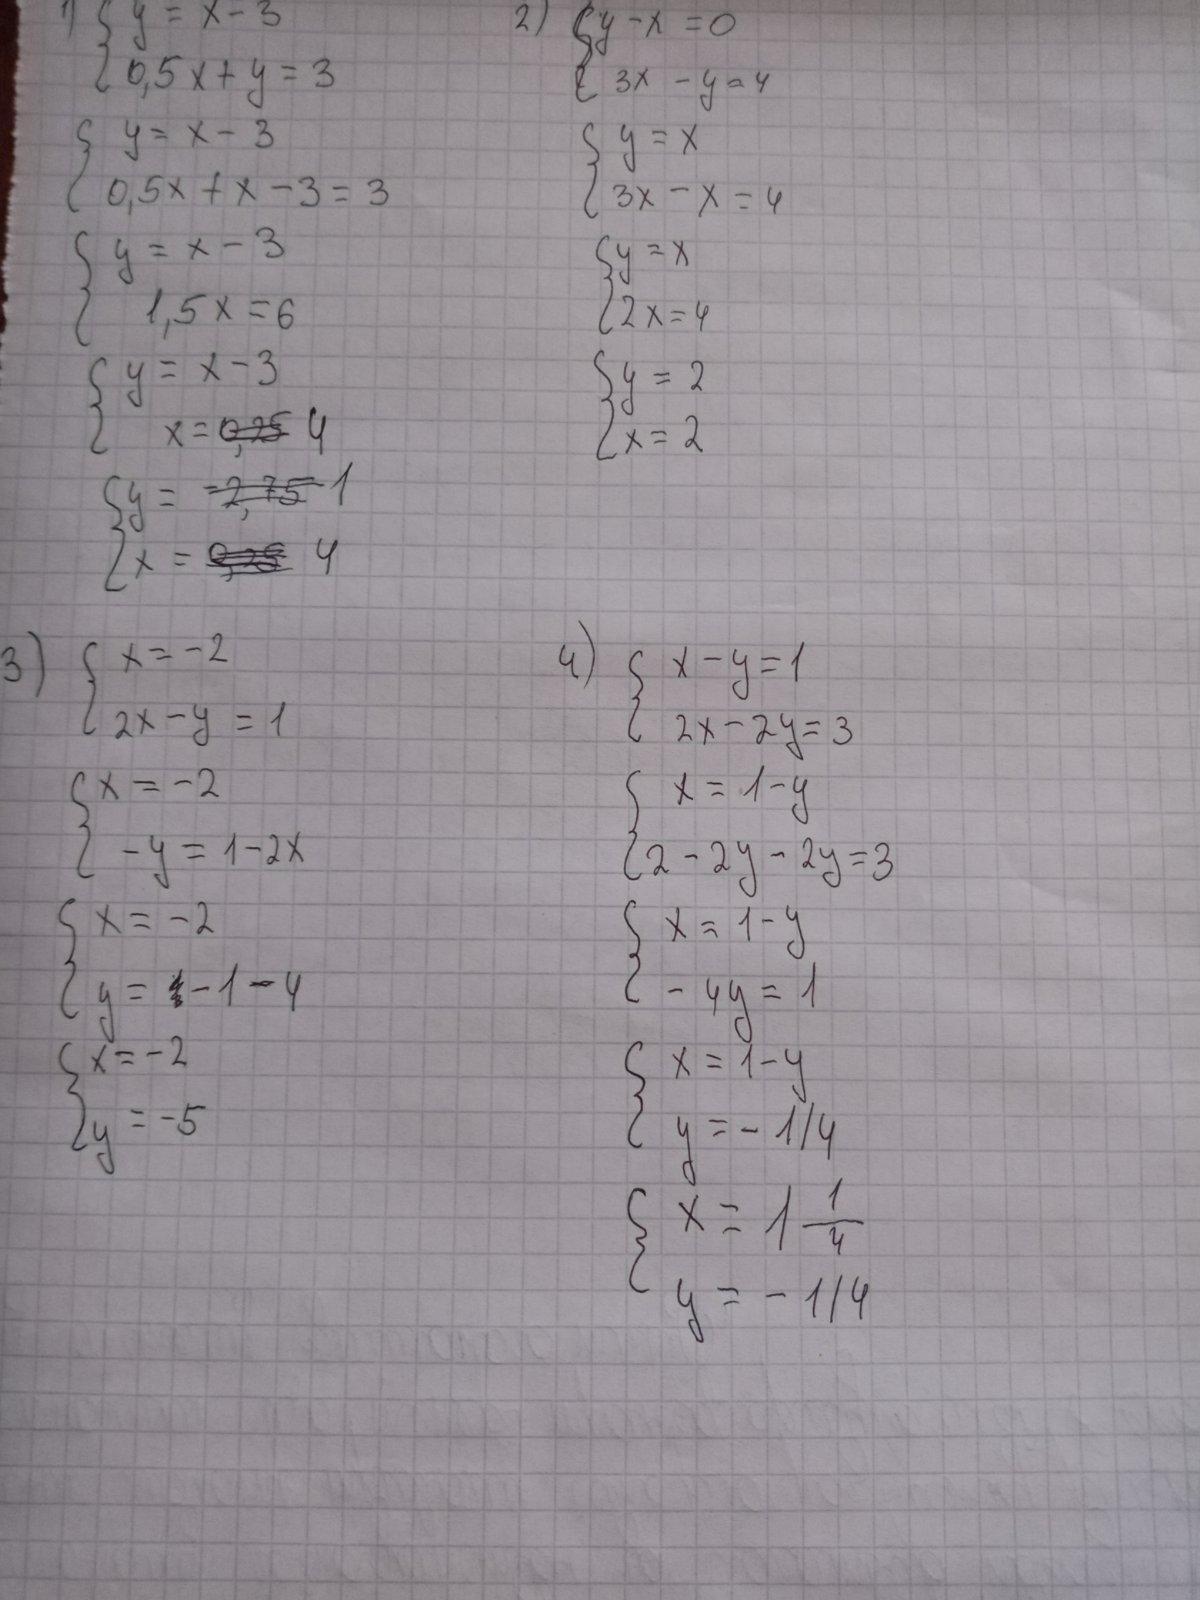 1) { y = x - 3
0,5x + y = 3
{ y = x - 3
0,5x + x - 3 = 3
{ y = x - 3
1,5x = 6
{ y = x - 3
x = 0,25 4
{ y = -2,75 1
x = 0,25 4
2) { y - x = 0
3x - y = 4
{ y = x
3x - x = 4
{ y = x
2x = 4
{ y = 2
x = 2
3) { x = -2
2x - y = 1
{ x = -2
-y = 1 - 2x
{ x = -2
y = -1 - 4
{ x = -2
y = -5
4) { x - y = 1
2x - 2y = 3
{ x = 1 - y
2 - 2y - 2y = 3
{ x = 1 - y
-4y = 1
{ x = 1 - y
y = -1/4
{ x = 1 1/4
y = -1/4